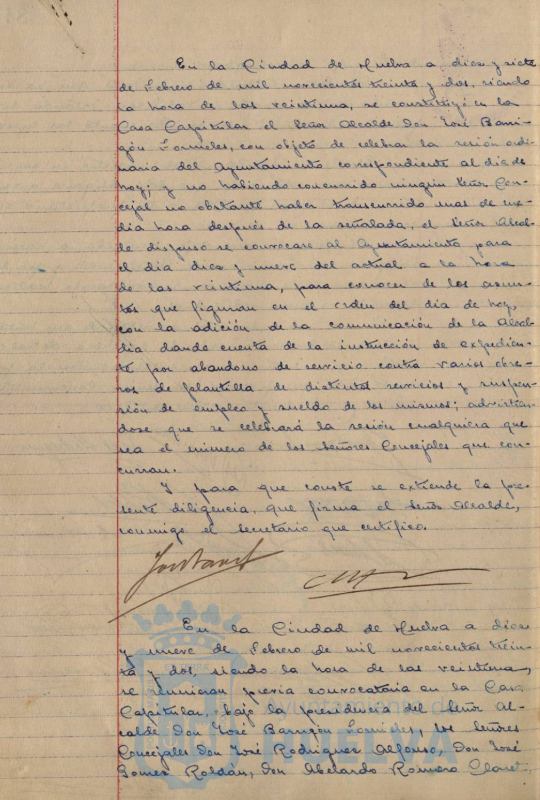 En la Ciudad de Huelva a diez y siete
de Febrero de mil novecientos treinta y dos, siendo
la hora de las veintiuna, se constituyó en la
Casa Capitular el Señor Alcalde Don José Barri-
gón Fornieles, con objeto de celebrar la sesión ordi-
naria del Ayuntamiento correspondiente al dia de
hoy; y no habiendo concurrido ningun Señor Con-
cejal no obstante haber transcurrido mas de me-
dia hora después de la señalada, el Señor Alcal-
de dispuso se convocase al Ayuntamiento para
el dia diez y nueve del actual a la hora
de las veintiuna, para conocer de los asun-
tos que figuran en el orden del dia de hoy,
con la adición de la comunicación de la Alcal-
dia dando cuenta de la instrucción de expedien-
te por abandono de servicio contra varios obre-
ros de plantilla de distintos servicios y suspen-
sión de empleo y sueldo de los mismos; advirtien-
dose que se celebrará la sesión cualquiera que
sea el número de los Señores Concejales que con-
curran.
Y para que conste se extiende la pre-
sente diligencia, que firma el Señor Alcalde,
conmigo el Secretario que certifico.
En la Ciudad de Huelva a diez
y nueve de Febrero de mil novecientos trein-
ta y dos, siendo la hora de las veintiuna,
se reunieron previa convocatoria en la Casa
Capitular, bajo la presidencia del Señor Al-
calde Don José Barrigón Fornieles, los Señores
Concejales Don José Rodriguez Alfonso, Don José
Gomez Roldán, Don Abelardo Romero Claret,